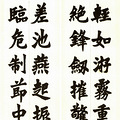 輕如游霧重
絕鋒劒摧驚
差池燕起振
臨危制節中